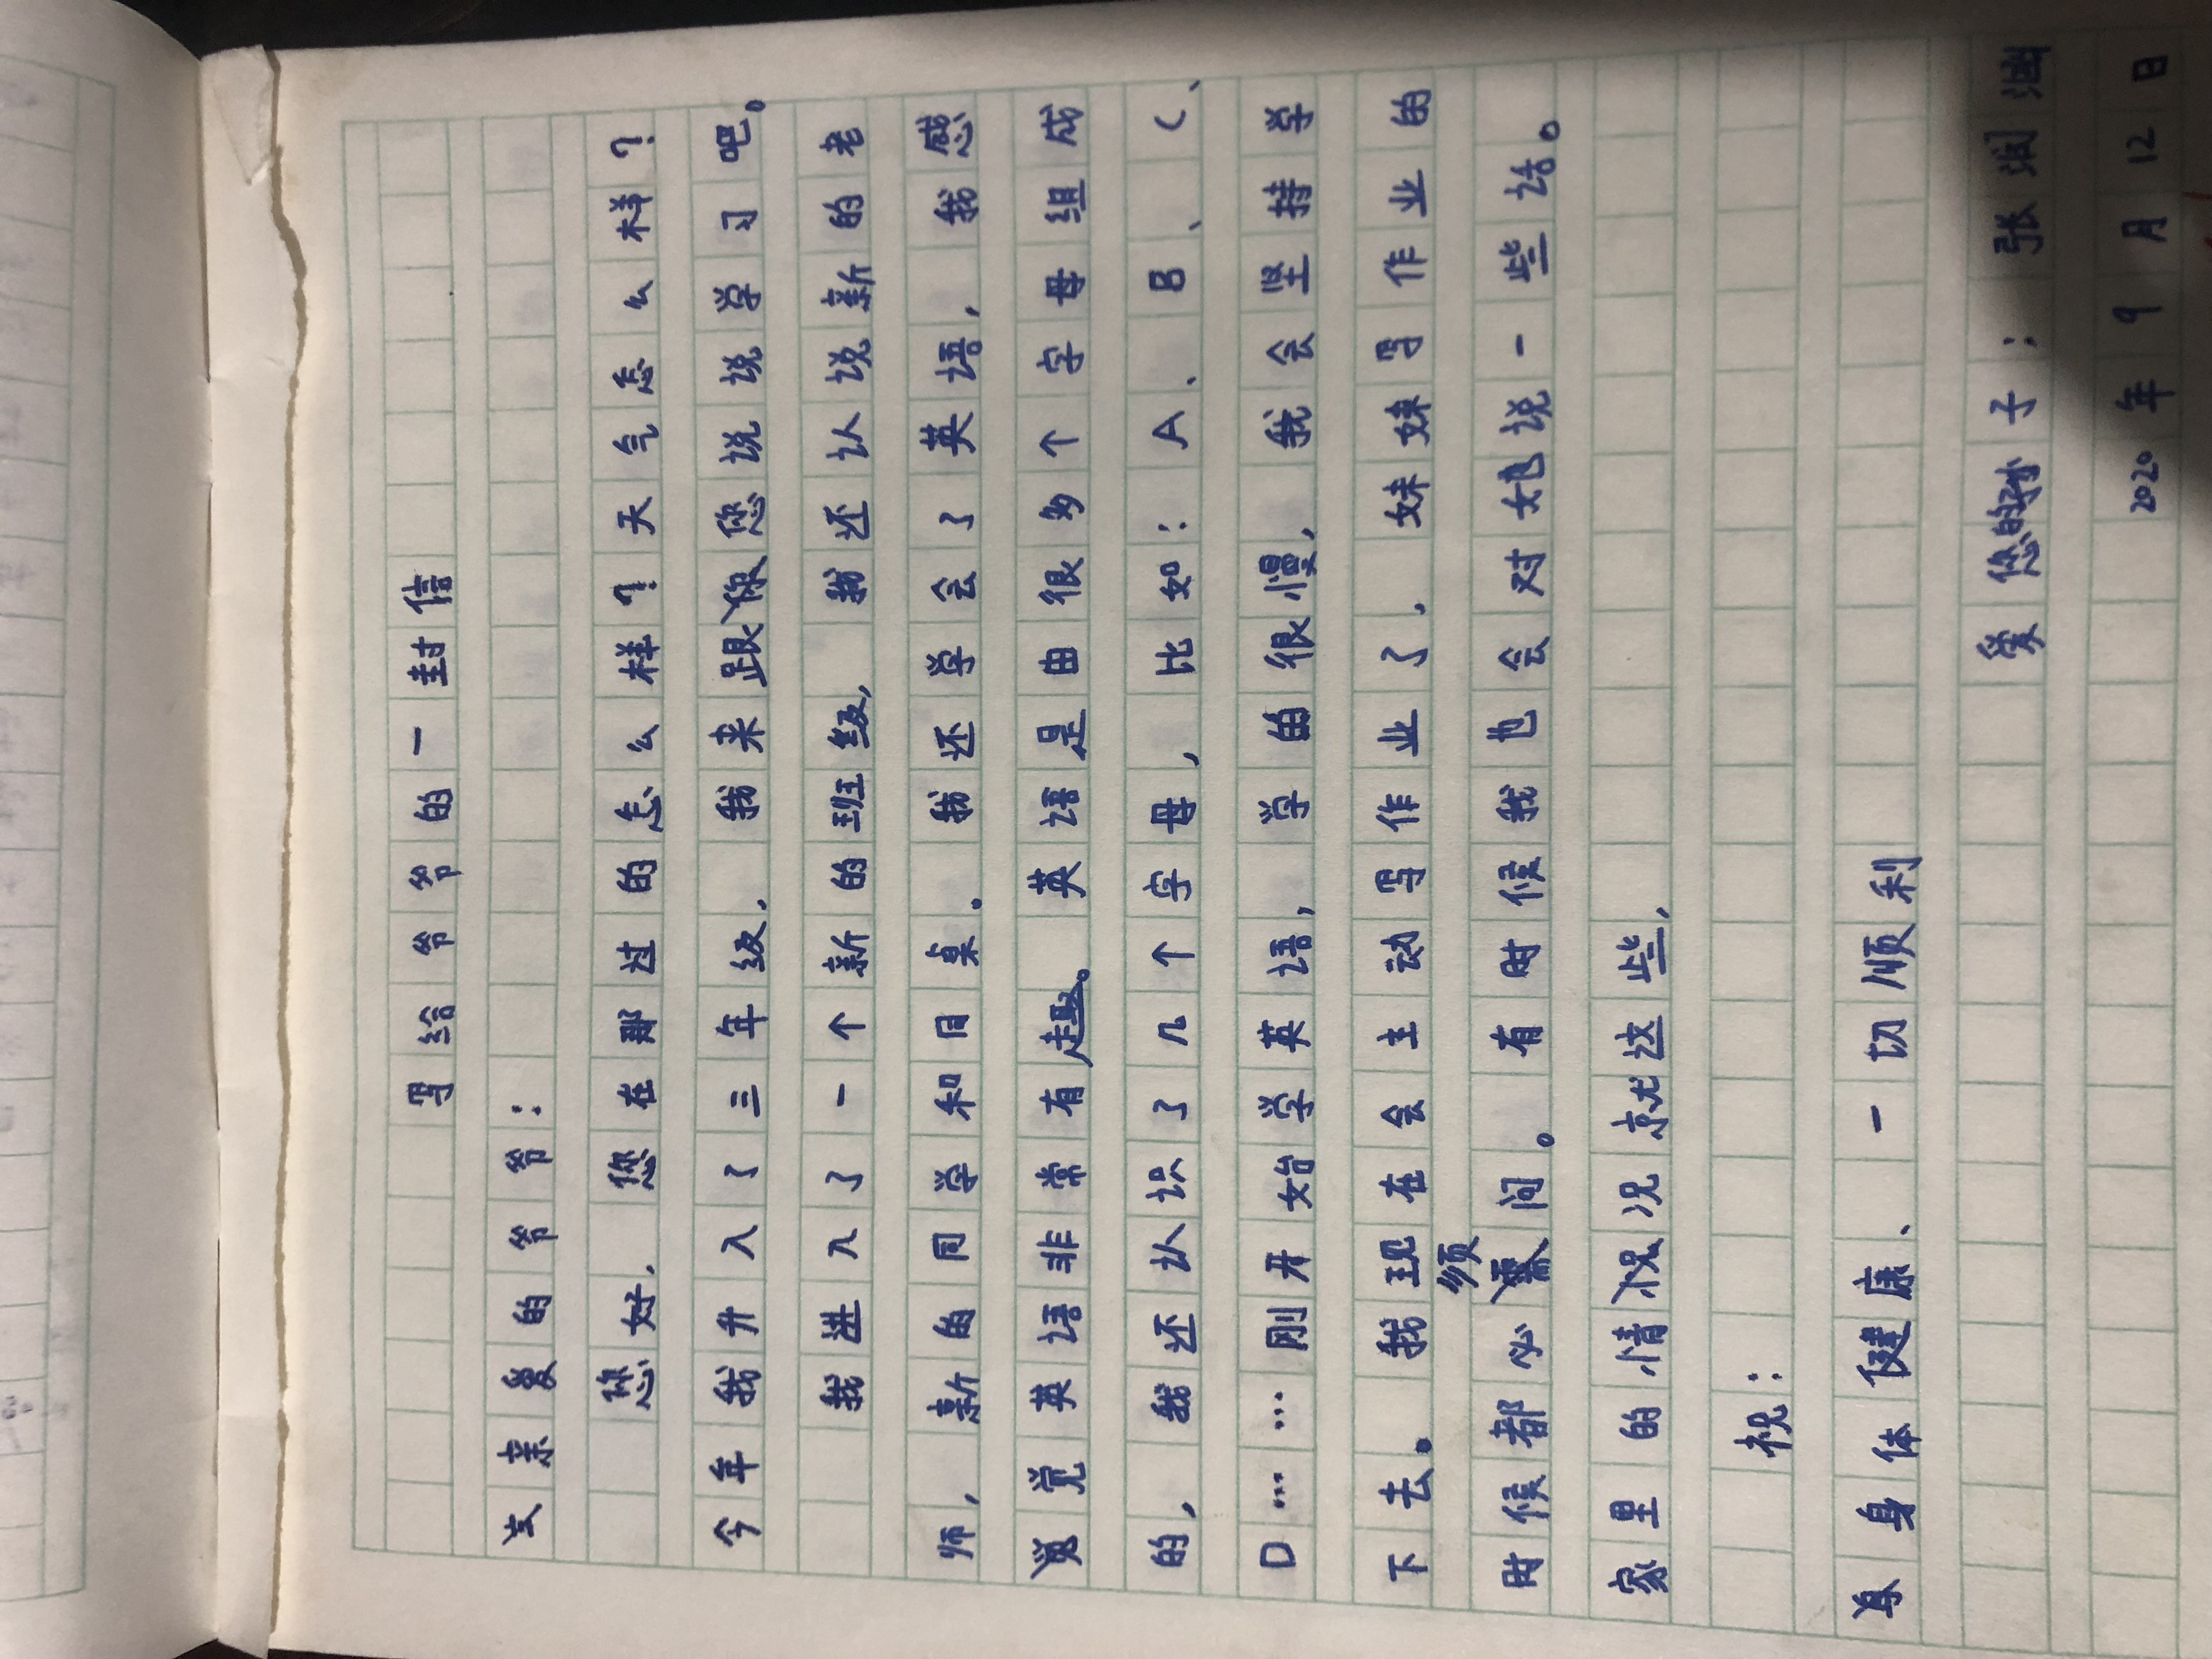 写给爷爷的一封信
亲爱的爷爷：
您好.您在那过的怎么样？天气怎么样？
今年我升入了三年级.我来跟您说说学习吧。
我进入了一个新的班级,我还认识新的老
师,新的同学和同桌.我还学会了英语,我感
觉英语非常有趣。英语是由很多个字母组成
的,我还认识了几个字母,比如：A、B、C、
D……刚开始学英语,学的很慢,我会坚持学
下去。我现在会主动写作业了.妹妹写作业的
时候都必须问。有时候我也会对她说一些话。
家里的情况就这些.
祝：
身体健康、一切顺利
爱您的孙子：张润涵
2020年9月12日